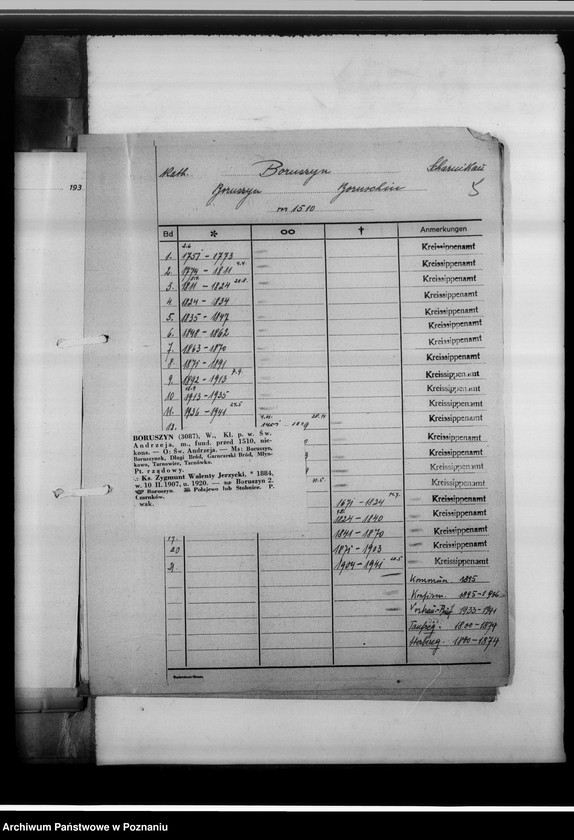 193
Kath. Boruszyn Scharnikau
Boruszyn Boruschin 5
1510
Bd * oo † Anmerkungen
1. 1751 - 1773 Kreissippenamt
2. 1774 - 1811 Kreissippenamt
3. 1811 - 1824 Kreissippenamt
4. 1824 - 1834 Kreissippenamt
5. 1835 - 1847 Kreissippenamt
6. 1848 - 1862 Kreissippenamt
7. 1863 - 1870 Kreissippenamt
8. 1871 - 1891 Kreissippenamt
9. 1892 - 1913 Kreissippenamt
10. 1913 - 1935 Kreissippenamt
11. 1936 - 1941 Kreissippenamt
Kreissippenamt
BORUSZYN (3087), W., Kł. p. w. Św.
Andrzeja, m., fund. przed 1510, nie-
kons. — O: Św. Andrzeja. — Ma: Boruszyn,
Boruszynek, Długi Bród, Garncarski Bród, Młyn-
kowo, Tarnowiec, Tarnówko.
Pt. rządowy.
.: Ks. Zygmunt Walenty Jerzycki, * 1884,
w. 10 II. 1907, u. 1920. — Boruszyn 2.
Boruszyn. Połajewo lub Stobnica. P.
Czarnków.
wak.
Kreissippenamt
Kreissippenamt
Kreissippenamt
Kreissippenamt
1671 - 1824 Kreissippenamt
1824 - 1840 Kreissippenamt
17. 1841 - 1870 Kreissippenamt
20 1871 - 1903 Kreissippenamt
1904 - 1941 Kreissippenamt
Kommun. 1895
Konfirm. 1895-1926
1933-1941
Taufreg. 1800-1874
Sterbreg. 1800-1874
Archiwum Państwowe w Poznaniu